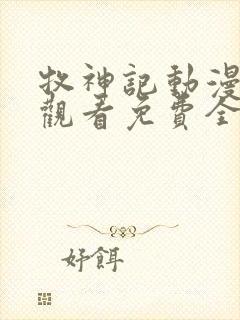 牧神記動漫
觀看免費全
好餌